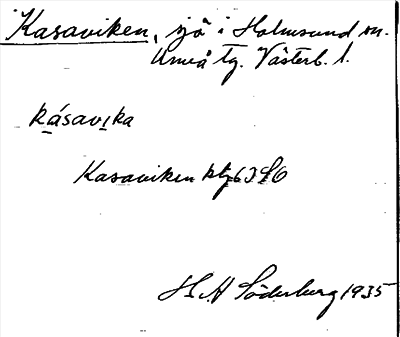 Kasaviken, sjö i Holmsund sn.
Umeå tg. Västerb. l.
kásavika
Kasaviken ktg 63 SO
H A Söderberg 1935